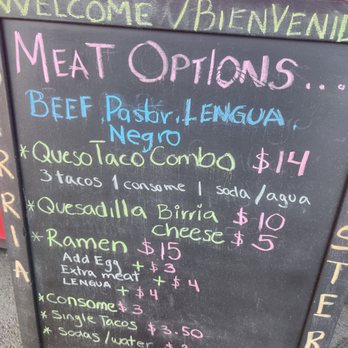 WELCOME / BIENVENI
MEAT OPTIONS....
BEEF, Pastor, LENGUA,
Negro
*Queso Taco Combo $14
3 tacos 1 consome 1 soda/agua
*Quesadilla Birria $10
cheese $5
*Ramen $15
Add Egg + $3
Extra meat + $4
LENGUA + $4
*consome $3
*Single Tacos $3.50
*Sodas/water $
RRIA
STER